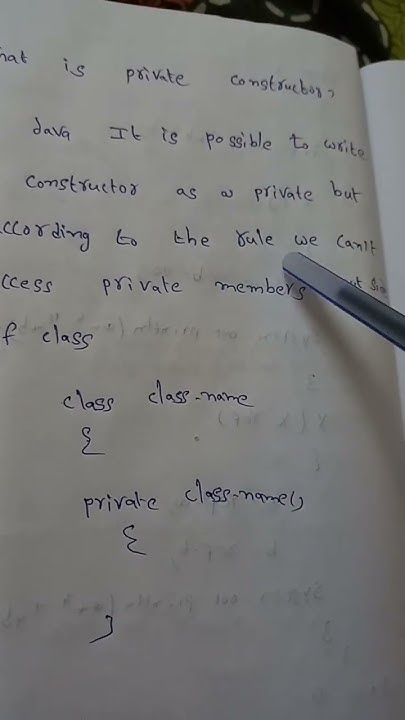 hat is private constructor?
Java It is possible to write
constructor as a private but
ccording to the rule we can't
ccess private members
f class
class class-name
{
private class-name()
{
}